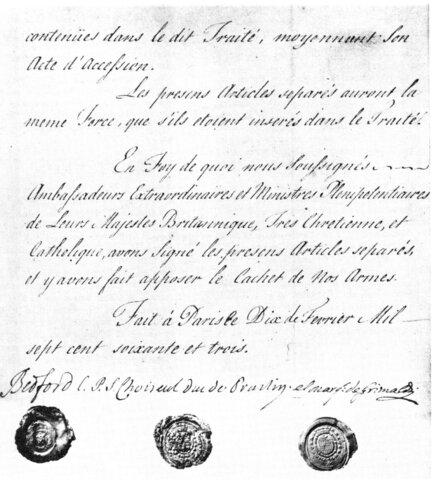 contenües dans le dit Traité, moyennant son
Acte d'Accession.
Les presens Articles separés auront la
meme Force, que s'ils etoient inserés dans le Traité.
En Foy de quoi nous soussignés
Ambassadeurs Extraordinaires et Ministres Plenipotentiaires
de Leurs Majestes Britannique, Très Chretienne, et
Catholique, avons signé les presens Articles separés,
et y avons fait apposer le Cachet de Nos Armes.
Fait à Paris le Dix de Fevrier Mil
sept cent soixante et trois.
Bedford C.P.S. Choiseul duc de Praslin. el marqs. de Grimaldi